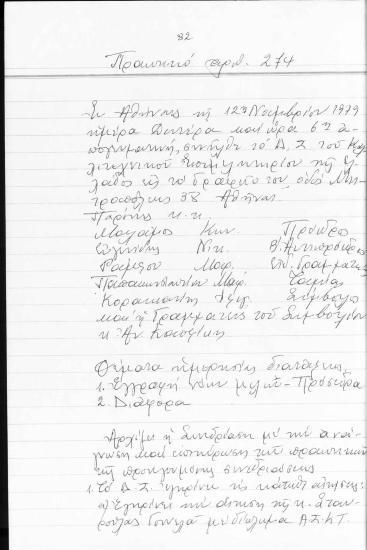 82
Πρακτικό αριθ. 274
Στην Αθήνα τη 12η Νοεμβρίου 1979
ημέρα Δευτέρα και ώρα 6η α-
πογευματινή, συνήλθε το Δ.Σ. του Καλ-
λιτεχνικού Επιμελητηρίου της Ελ-
λάδος εις τα γραφεία του, οδός Μη-
τροπόλεως 38 Αθήνας.
Παρόντες κ.κ.
Κων. Πρόεδρος
Νικ. Β' Αντιπρόεδρος
Μαρ. Γραμματεύς
Παπακωνσταντίνου Μαρ. Ταμίας
Σύμβολος
και η Γραμματεύς του Συμβουλίου
κ Αν.
Θέματα ημερησίας διατάξεως
1. Εγγραφή νέων μελών - Πρόεδρο
2. Διάφορα
Αρχίζει η Συνεδρίαση με την ανάγ-
νωση και επικύρωση των πρακτικών
της προηγουμένης συνεδριάσεως
1. Το Δ.Σ. εγκρίνει τις κάτωθι αιτήσεις:
α) Εγκρίνει την αίτηση της κ. Σταυ-
ρούλας με δίπλωμα Α.Σ.Κ.Τ.